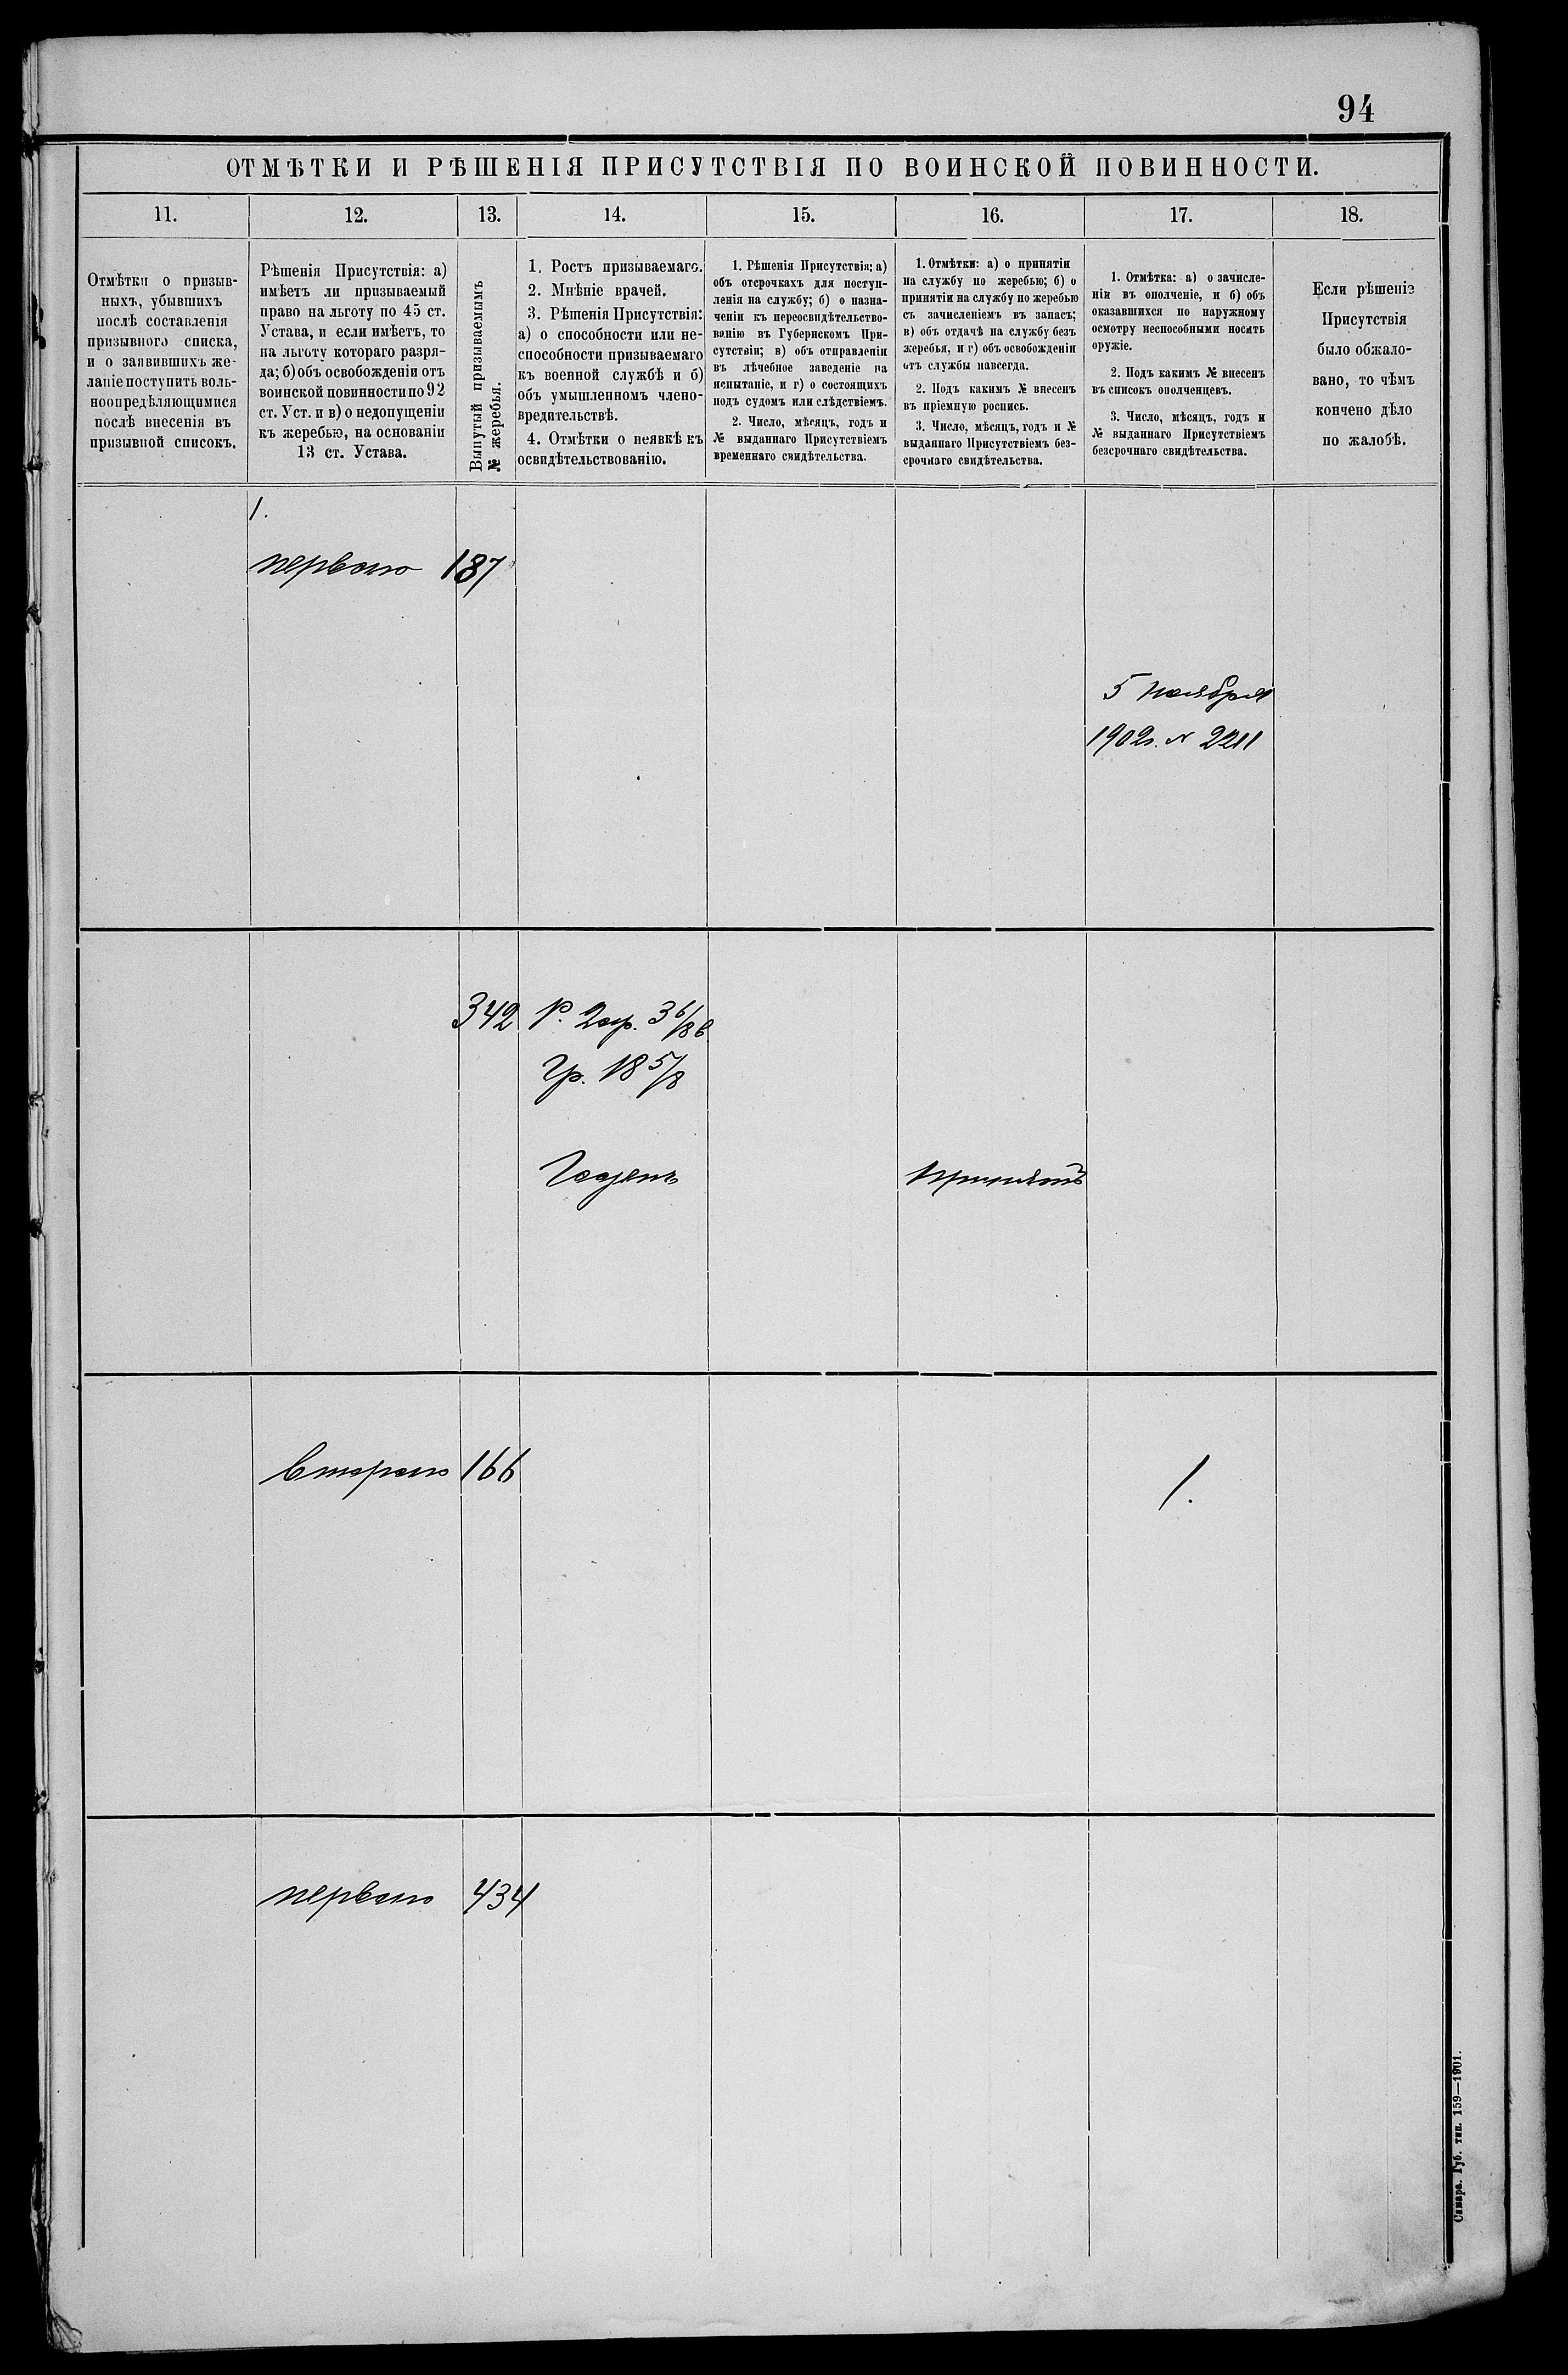 94
ОТМѢТКИ И РѢШЕНІЯ ПРИСУТСТВІЯ ПО ВОИНСКОЙ ПОВИННОСТИ.
11.
12.
13.
14.
15.
16.
17.
18.
Отмѣтки о призыв-
ныхъ, убывшихъ
послѣ составленія
призывного списка,
и о заявившихъ же-
ланіе поступить воль-
ноопредѣляющимися
послѣ внесенія въ
призывной списокъ.
Рѣшенія Присутствія: а)
имѣетъ ли призываемый
право на льготу по 45 ст.
Устава, и если имѣетъ, то
на льготу котораго разря-
да; б) объ освобожденіи отъ
воинской повинности по 92
ст. Уст. и в) о недопущеніи
къ жеребью, на основаніи
13 ст. Устава.
Вынутый призываемымъ
№ жеребья.
1. Ростъ призываемаго.
2. Мнѣніе врачей.
3. Рѣшенія Присутствія:
а) о способности или не-
способности призываемаго
къ военной службѣ и б)
объ умышленномъ члено-
вредительствѣ.
4. Отмѣтки о неявкѣ къ
освидѣтельствованію.
1. Рѣшенія Присутствія: а)
объ отсрочкахъ для поступ-
ленія на службу; б) о назна-
ченіи къ переосвидѣтельство-
ванію въ Губернскомъ При-
сутствіи; в) объ отправленіи
въ лѣчебное заведеніе на
испытаніе, и г) о состоящихъ
подъ судомъ или слѣдствіемъ.
2. Число, мѣсяцъ, годъ и
№ выданнаго Присутствіемъ
временнаго свидѣтельства.
1. Отмѣтки: а) о принятіи
на службу по жеребью; б) о
принятіи на службу по жеребью
съ зачисленіемъ въ запасъ;
в) объ отдачѣ на службу безъ
жеребья, и г) объ освобожденіи
отъ службы навсегда.
2. Подъ какимъ № внесенъ
въ пріемную роспись.
3. Число, мѣсяцъ, годъ и №
выданнаго Присутствіемъ без-
срочнаго свидѣтельства.
1. Отмѣтка: а) о зачисле-
ніи въ ополченіе, и б) объ
оказавшихся по наружному
осмотру неспособными носить
оружіе.
2. Подъ какимъ № внесенъ
въ списокъ ополченцевъ.
3. Число, мѣсяцъ, годъ и
№ выданнаго Присутствіемъ
безсрочнаго свидѣтельства.
Если рѣшеніе
Присутствія
было обжало-
вано, то чѣмъ
кончено дѣло
по жалобѣ.
1.
перваго 187
5 ноября
1902г. № 2211
342 Р. 2ар. 3 6/8 в
Гр. 18 5/8
Годенъ
принятъ
втораго 166
1.
перваго 434
Самара. Губ. тип. 159—1901.